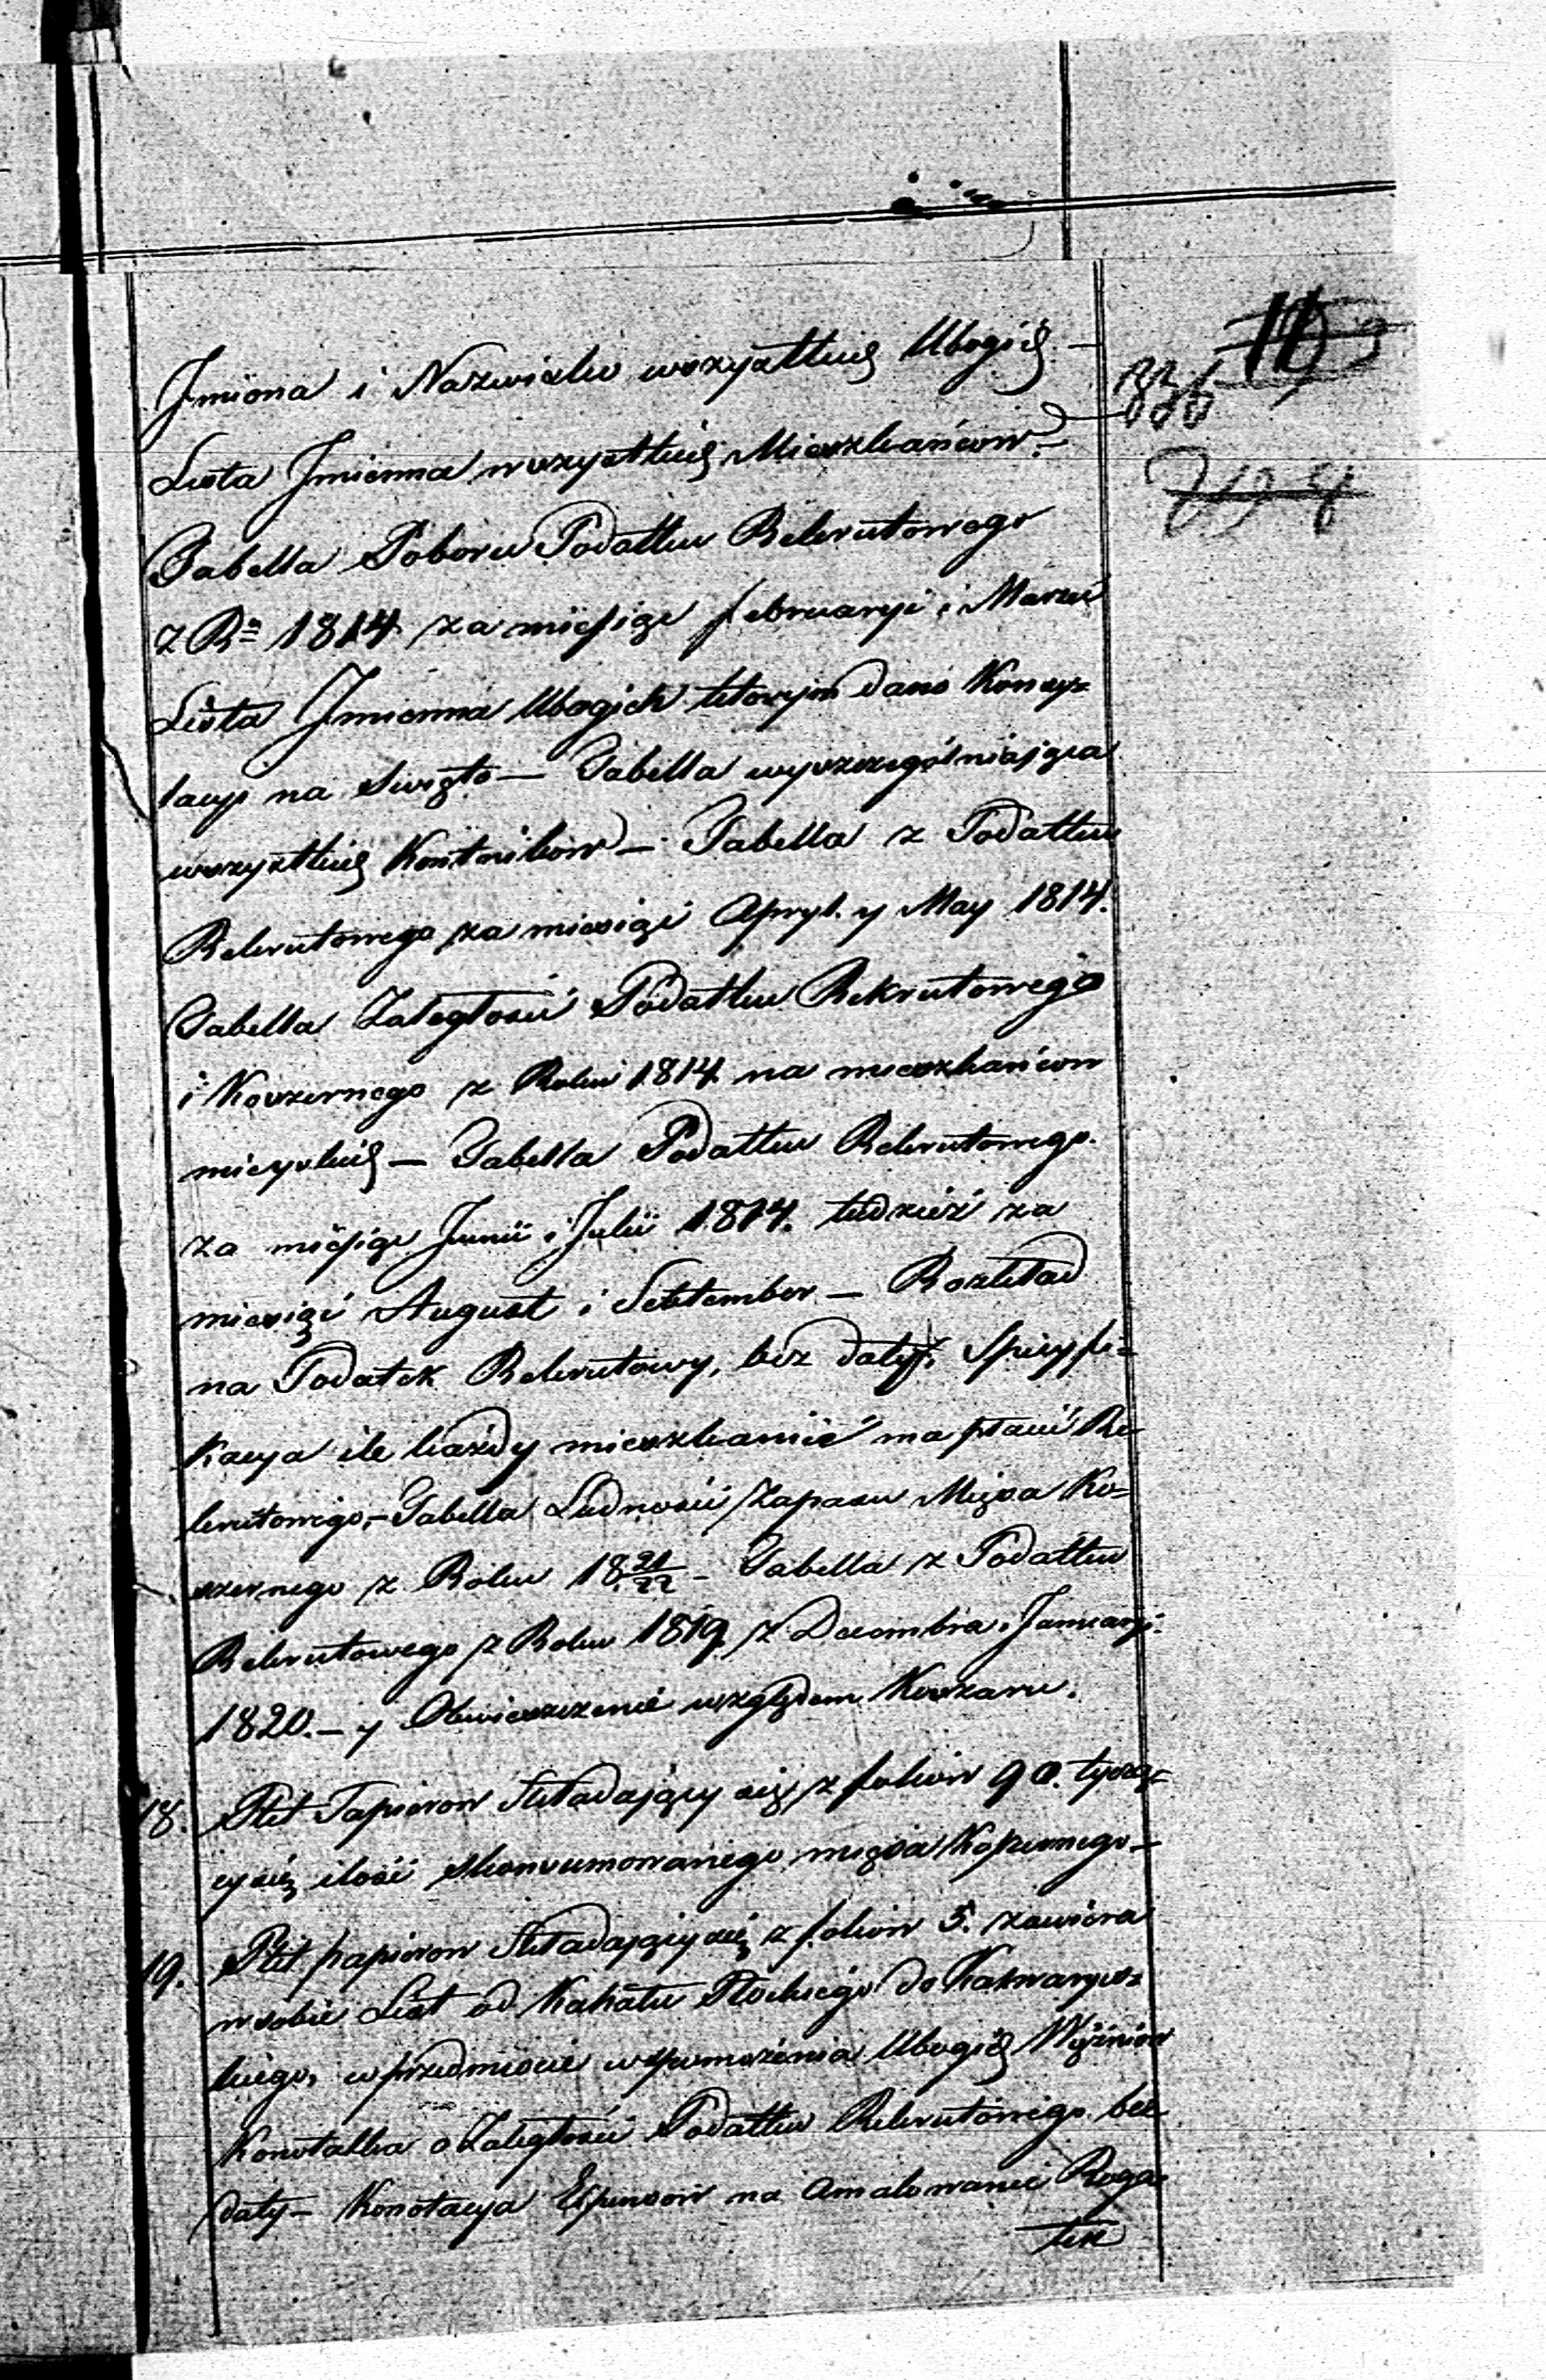 Jmiona i Nazwisko wszystkich Ubogich. —
Lista Jmienna wszystkich Mieszkańcow. —
Tabella Poboru Podatku Rekrutowego
z R= 1814 za miesiąc februaryi i Marzu
Lista Jmienna Ubogich ktorym dano Konsy=
lacyi na Swięto — Tabella wyszczególniaiąca
wszystkich Kontnikow — Tabella z Podatku
Rekrutowego za miesiąc Apryl. y May 1814.
Tabella Zaległości Podatku Rekrutowego
i Koszernego z Roku 1814 na mieszkańcow
mieyskich — Tabella Podatku Rekrutowego.
za miesiąc Junii i Julii 1814. tudzież za
miesiąc August i September — Rozkład
na Podatek Rekrutowy, bez daty, Specyfi=
kacya ile każdy mieszkaniec ma płacić Re=
krutowego, — Tabella Ludności Zapasu Mięsa Ko=
szernego z Roku 18 21/22 — Tabella z Podatku
Rekrutowego z Roku 1819. z Decembra i Januaryi.
1820. — y Obwieszczenie względem Koszaru.
18. Plik Papierow składający się z foliow 90. tycząc=
cysię ilości skonsumowanego mięsa Koszernego —
19. Plik papierow składającysię z foliow 5. zawiera
w sobie List od Kahału Płockiego do Kalwaryis=
kiego, w przedmiocie wspomożenia Ubogich Więźniow
Konotatka o Zaległości Podatku Rekrutowego bez
daty — Konotacya Expensow na Amalowanie Roga=
tek